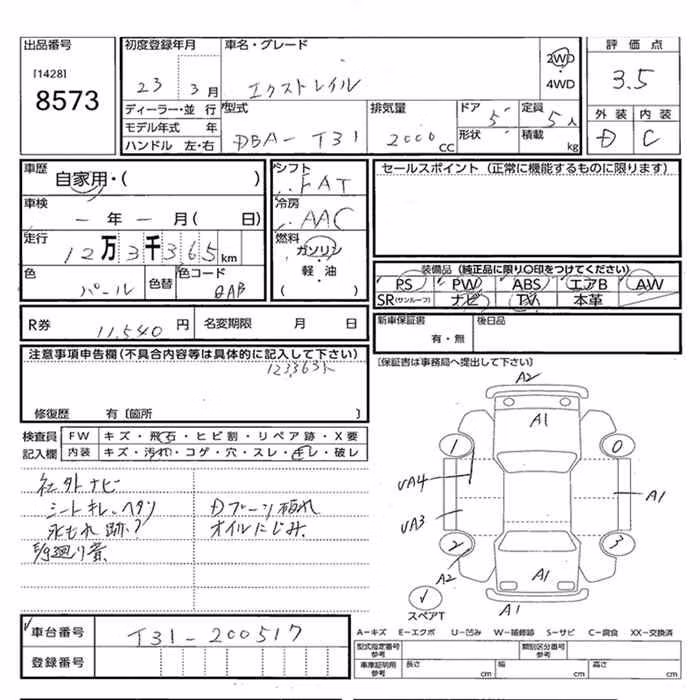 出品番号
[1428]
8573
初度登録年月
23 3月
車名・グレード
エクストレイル
2WD
・
4WD
評価点
3.5
外装 内装
D C
ディーラー・並行
モデル年式 年
ハンドル 左・右
型式
DBA-T31
排気量
2000 CC
ドア 5
形状
定員 5人
積載 kg
車歴
自家用・( )
車検
ー年ー月( 日)
走行
12万3千365km
色
パール
色替
色コード
QAB
シフト
FAT
冷房
AAC
燃料
ガソリン
・
軽・油
( )
セールスポイント (正常に機能するものに限ります)
装備品 (純正品に限り〇印をつけてください)
PS PW ABS エアB AW
SR(サンルーフ) ナビ TV 本革
R券 11,540 円 名変期限 月 日
新車保証書
有・無
後日品
[保証書は事務局へ提出して下さい]
注意事項申告欄(不具合内容等は具体的に記入して下さい)
123365k
修復歴 有〔箇所 〕
検査員
記入欄
FW キズ・飛石・ヒビ割・リペア跡・X要
内装 キズ・汚れ・コゲ・穴・スレ・キレ・破レ
社外ナビ
シートキレ、ヘタリ Dブーツ破れ
水もれ跡? オイルにじみ
A2
A1
1
0
UA4
UA3
A1
2
3
A2
A1
A1
スペアT
車台番号 T31-200517
登録番号
A-キズ E-エクボ U-凹み W-補修跡 S-サビ C-腐食 XX-交換済
型式指定番号
参考
類別区分番号
参考
車庫証明用
参考
長さ cm 幅 cm 高さ cm